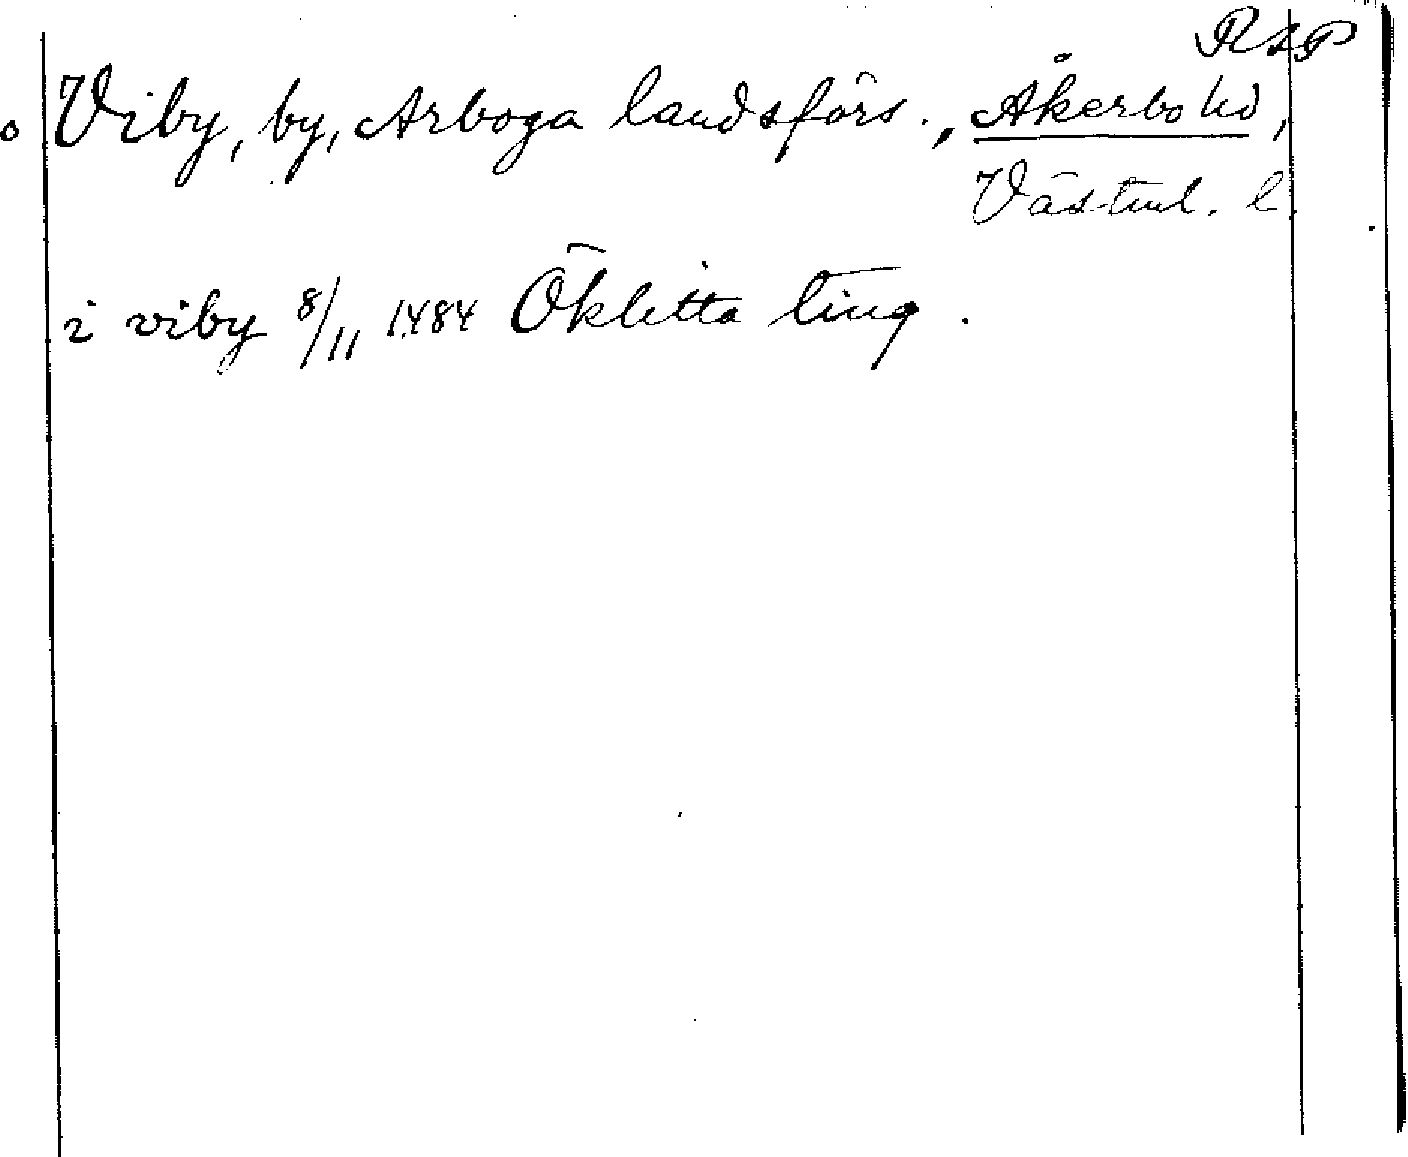 RAP
Viby, by, Arboga landsförs., Åkerbo hd,
Västml. l
i viby 8/11 1484 Ökletta ting.